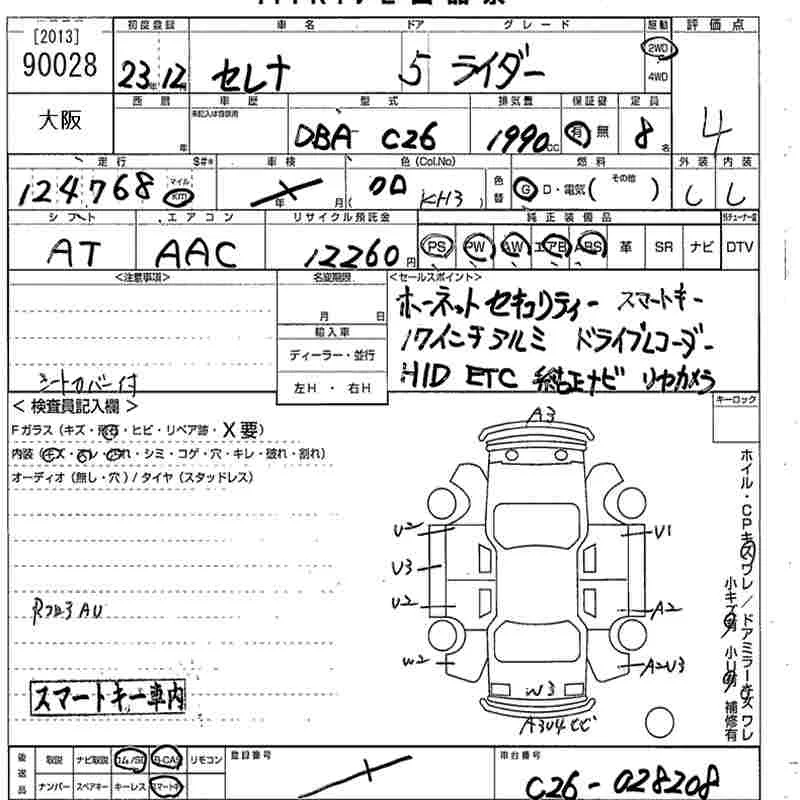 [2013]
90028
初度登録 車名 ドア グレード 駆動 評価点
23年12月 セレナ 5 ライダー 2WD 4WD
4
大阪
西暦 車歴 型式 排気量 保証書 定員
年 未記入は自家用 DBA C26 1990cc 有 無 8名
走行 S#* 車検 色(Col.No) 燃料 外装 内装
124768 マイル km 年 月( KH3 ) 色替 G・D・電気( その他 ) し し
シフト エアコン リサイクル預託金 純正装備品
AT AAC 12260円 PS PW AW エアB ABS 革 SR ナビ DTV
<注意事項> 名変期限 <セールスポイント>
月 日
輸入車
ディーラー・並行
左H ・ 右H
ホーネットセキュリティー スマートキー
17インチアルミ ドライブレコーダー
HID ETC 純正ナビ リヤカメラ
シートカバー付
キーロック
< 検査員記入欄 >
Fガラス(キズ・飛石・ヒビ・リペア跡・X要)
内装(キズ・スレ・汚れ・シミ・コゲ・穴・キレ・破れ・割れ)
オーディオ(無し・穴)/タイヤ(スタッドレス)
A3
U2 U1
U3
U2 A2
W2 A2U3
W3
ホイル・CPキズワレ/ドアミラーキズワレ
小キズ有 小U有 補修有
スマートキー車内
後送品 取説 ナビ取説 B-CAS リモコン
ナンバー スペアキー キーレス スマートキー
登録番号
車台番号
C26-028208